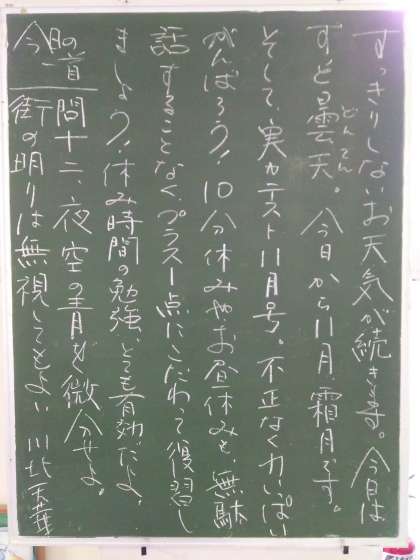 すっきりしないお天気が続きます。今日は
ずっと曇天。今日から11月、霜月です。
どんてん
そして、実力テスト11月号。不正なく力いっぱい
がんばろう！10分休みやお昼休みも、無駄
話することなく、プラス1点にこだわって復習し
ましょう！休み時間の勉強、とても有効だよ、
今日の一首
問十二、夜空の青を微分せよ。
街の明りは無視してもよい 川北天華